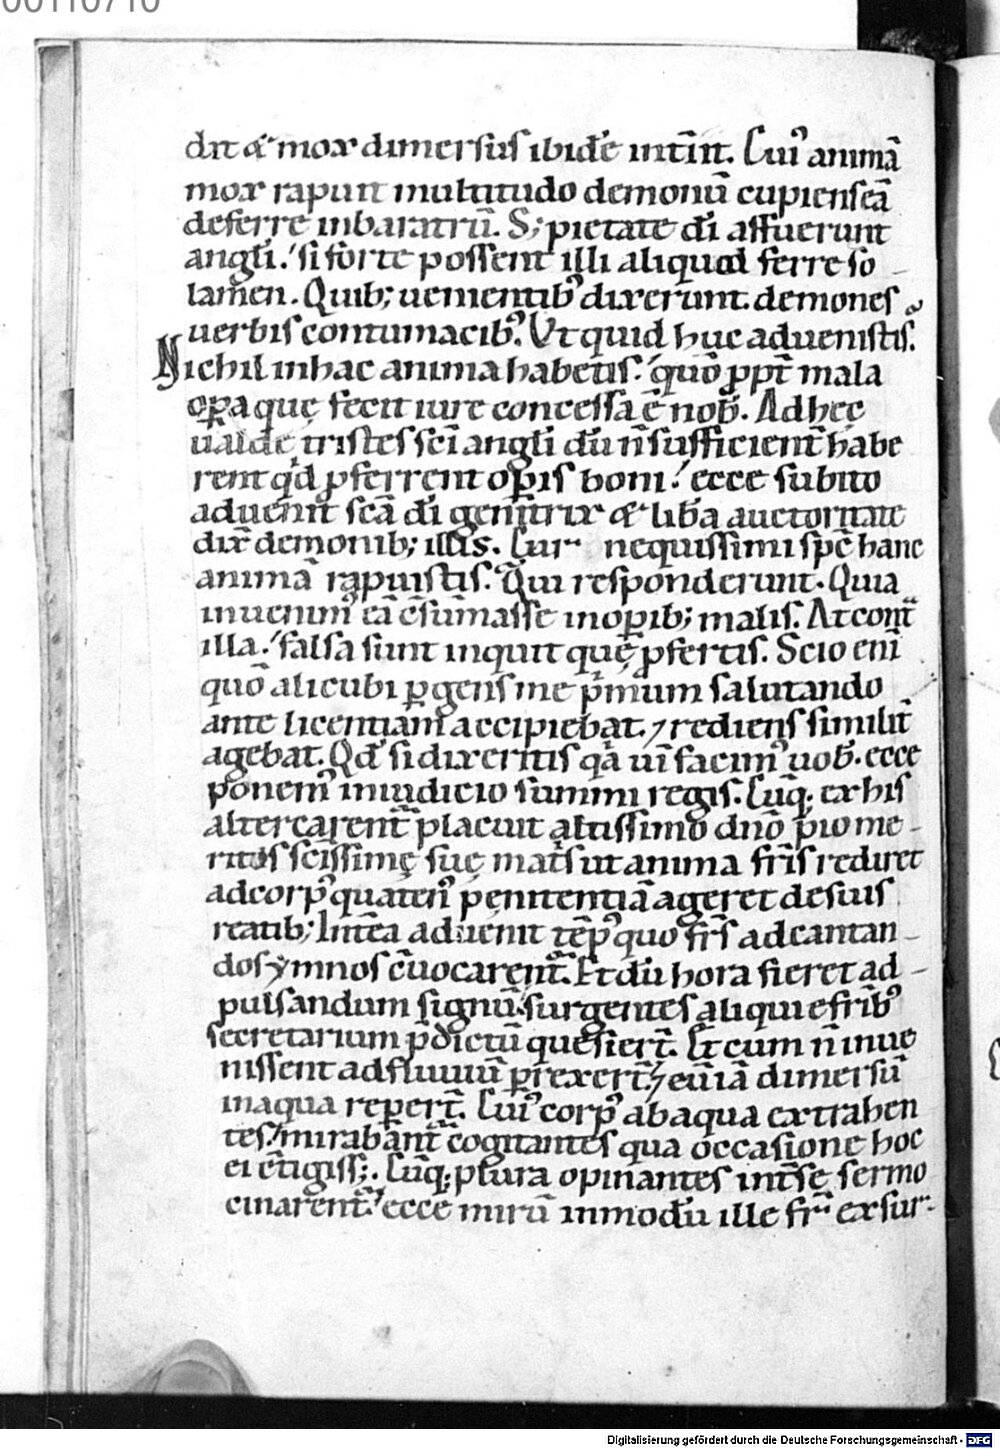 00110710
dit & mox dimersus ibidē intīit. Cui᾽ animā
mox rapuit multitudo demoniū cupiens eā
deferre inbaratrū. S; pietate dī affuerunt
angłi. si forte possent illi aliquod ferre so
lamen. Quib; uenientib᾽ dixerunt demones
uerbis contumacib᾽. Vt quid huc aduenistis.
Nichil inhac anima habetis. quō ꝓpt̄ mala
oꝑa quę fecit iure concessa ē nob̄. Ad hęc
ualde tristes sc̄i angłi dū n̄ sufficient̄ habe
rent qd̄ ꝓferrent oꝑis boni. ecce subito
aduenit sc̄a dī genitrix & lib̄a auctoritate
dix̄ demonib; illis. Cur nequissimi sp̄c hanc
animā rapuistis. Qui responderunt. Quia
inuenim᾽ eā c̄sūmasse inoꝑib; malis. At cont̄
illa. falsa sunt inquit quę ꝓfertis. Scio enī
quō alicubi ꝑgens me p̄mum salutando
ante licentiam accipiebat. ⁊ rediens similit̄
agebat. Qd̄ si dixeritis qā uī facim᾽ uob̄. ecce
ponem᾽ iniudicio summi regis. Cūq; ex his
altercarent̄ placuit altissimo dn̄o pio me-
ritis sc̄issimę suę mat̄s ut anima fr̄is rediret
adcorp᾽ quaten᾽ penitentiā ageret desuis
reatib; Int̄ea aduenit tēp᾽ quo fr̄s adcantan-
dos ymnos c̄uocarent̄. Et dū hora fieret ad-
pulsandum signū. surgentes aliqui efrīb᾽
secretarium p̄dictū quesiert̄. Et cum n̄ inue
nissent adfluuiū ꝑrexert̄. ⁊ eū iā dimersū
inaqua repert̄. Cui᾽ corp᾽ abaqua extrahen
tes. mirabant̄ cogitantes qua occasione hoc
ei c̄tigiss;. Cūq; plura opinantes int̄ se sermo
cinarent̄. ecce mirū inmodū ille fr̄ exsur-
Digitalisierung gefördert durch die Deutsche Forschungsgemeinschaft - DFG